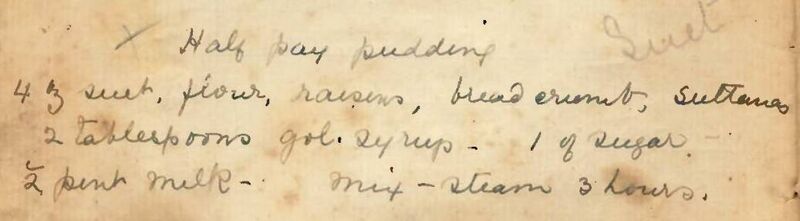 x Half pay pudding Suet
4 oz suet, flour, raisins, bread crumb, sultanas
2 tablespoons gol. syrup - 1 of sugar -
½ pint milk - mix - steam 3 hours.